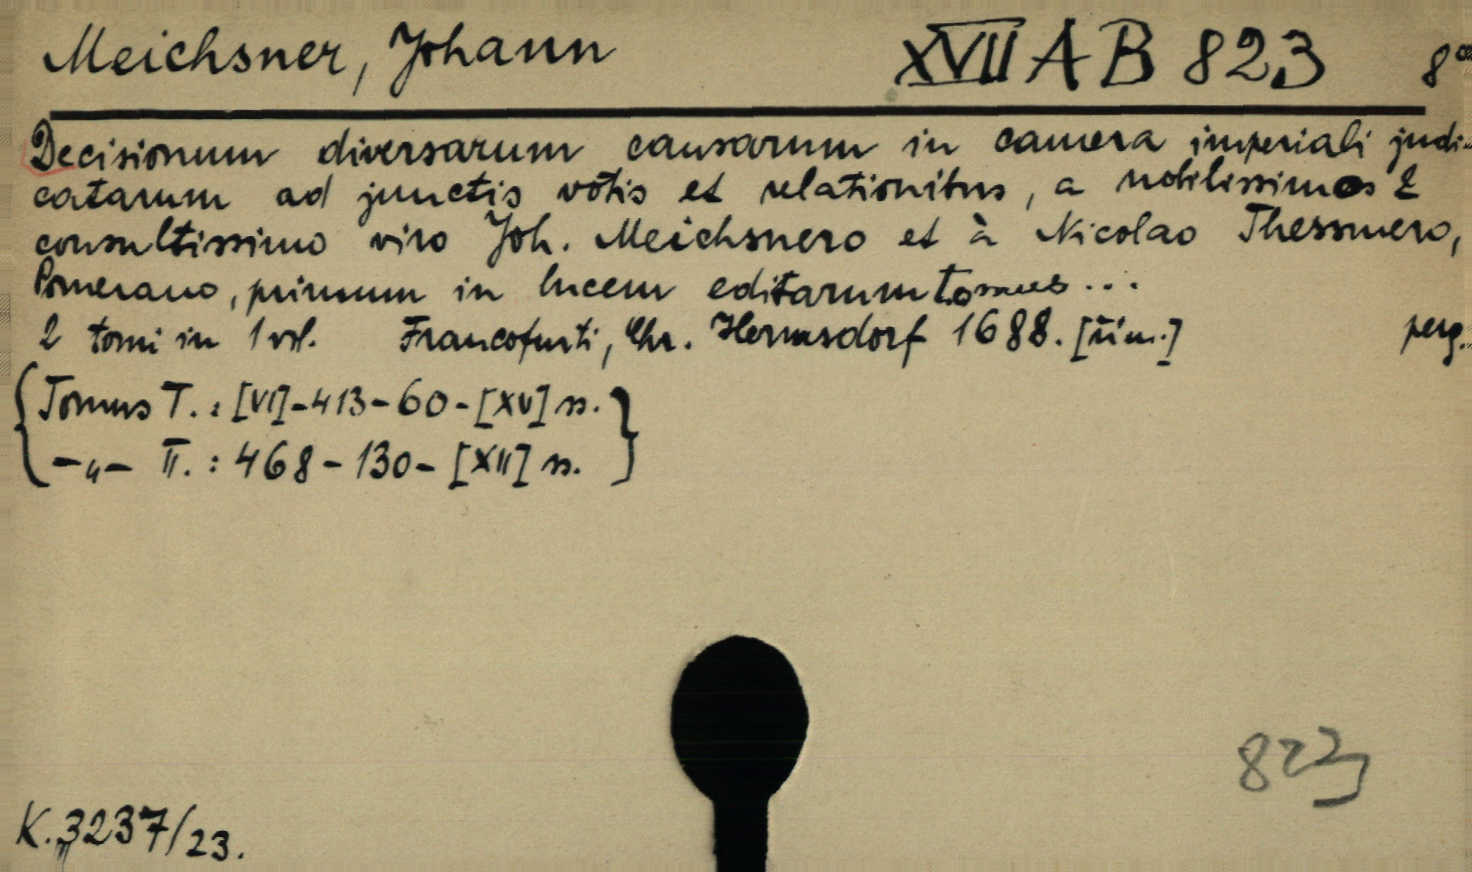 Meichsner, Johann XVII AB 823 8°
Decisionum diversarum causarum in camera imperiali judi-
catarum ad junctis votis et relationibus, a nobilissimos &
consultissimo viro Joh. Meichsnero et à Nicolao Thessmero,
Pomerano, primum in lucem editarum tomus...
2 tomi in 1 vol. Francofurti, Chr. Hermsdorf 1688. perg.
Tomus I.: [VI]-413-60-[XV] s.
-„- II.: 468-130-[XII] s.
823
K. 3237/23.